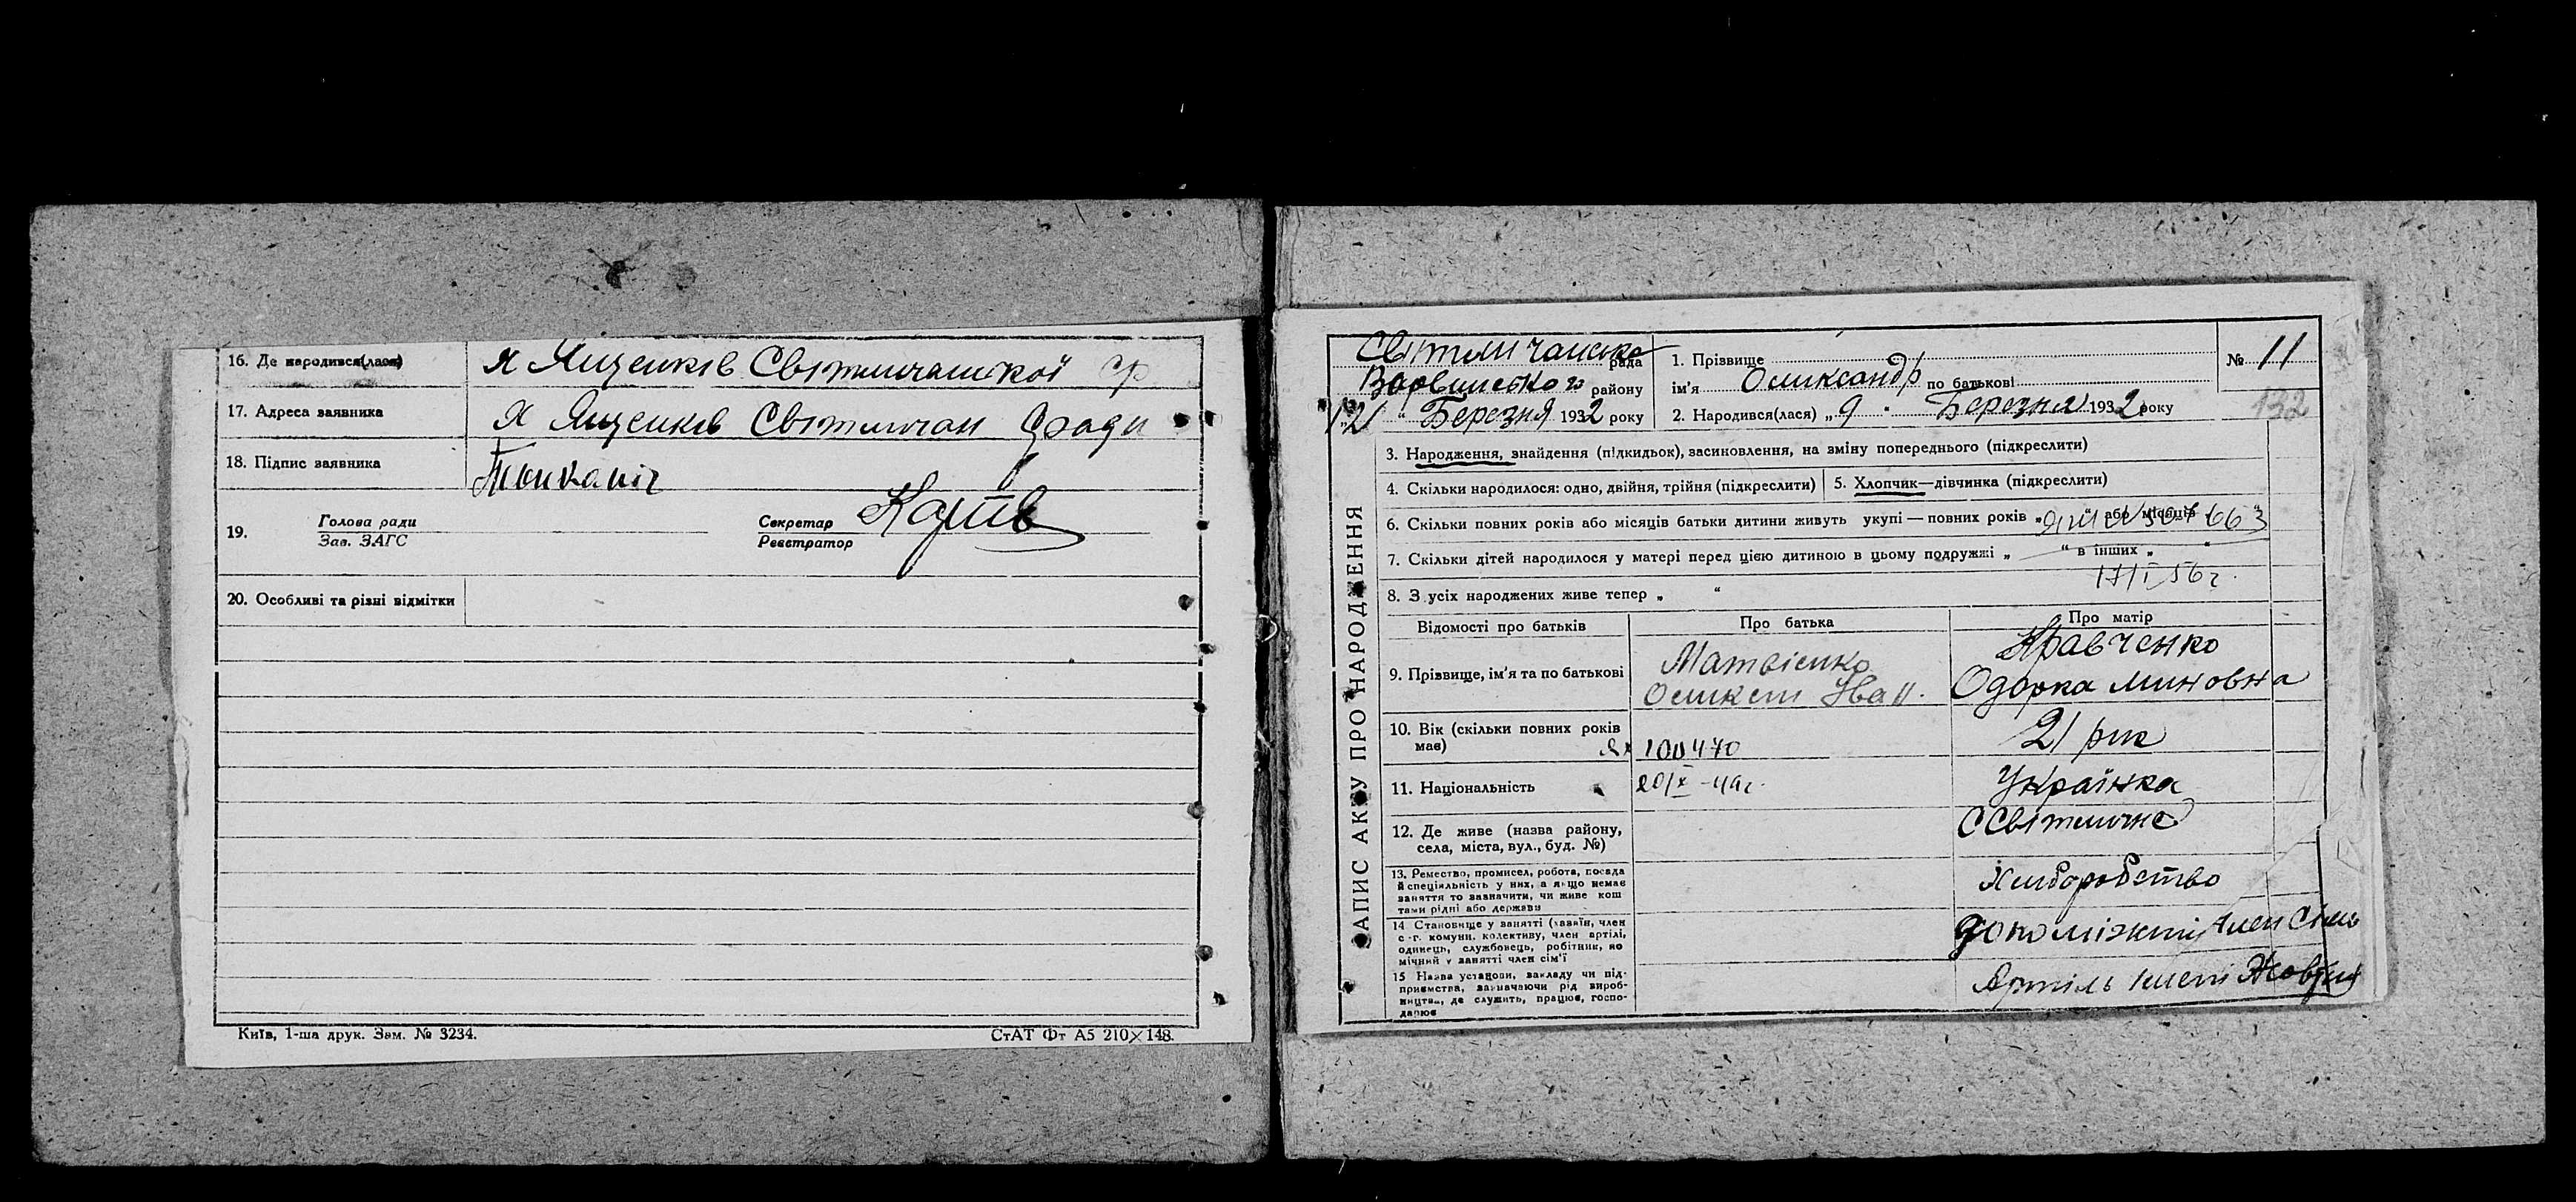 16. Де народився(лася)
х Ященків Світличанської ср
17. Адреса заявника
х Ященків Світличан с/ради
18. Підпис заявника
19. Голова ради
Зав. ЗАГС
Секретар
Реєстратор
20. Особливі та різні відмітки
Київ, 1-ша друк. Зам. № 3234.
СтАТ Фт А5 210×148.
Світличанська рада
Варвинського району
"12" Березня 1932 року
1. Прізвище
ім'я Олександр по батькові
2. Народився(лася) „9" Березня 1932 року
№ 11
132
ЗАПИС АКТУ ПРО НАРОДЖЕННЯ
3. Народження, знайдення (підкидьок), засиновлення, на зміну попереднього (підкреслити)
4. Скільки народилося: одно, двійня, трійня (підкреслити)
5. Хлопчик—дівчинка (підкреслити)
6. Скільки повних років або місяців батьки дитини живуть укупі — повних років „ " або місяців
7. Скільки дітей народилося у матері перед цією дитиною в цьому подружжі „ " в інших „ "
17/I 56 г.
8. З усіх народжених живе тепер „ "
Відомості про батьків
Про батька
Про матір
9. Прізвище, ім'я та по батькові
Матвієнко
Іван.
Кравченко
Одарка Миновна
10. Вік (скільки повних років має)
100470
21 рік
11. Національність
Українка
12. Де живе (назва району, села, міста, вул., буд. №)
с Світличне
13. Ремество, промисел, робота, посада й спеціяльність у них, а якщо немає заняття то зазначити, чи живе коштами рідні або держави
Хліборобство
14 Становище у занятті (хазяїн, член с.-г. комуни, колективу, член артілі, одинець, службовець, робітник, помічний у занятті член сім'ї
допоміжний член сім'ї
15 Назва установи, закладу чи підприємства, зазначаючи рід виробництва, де служить, працює, господарює
Артіль імені Жовтня